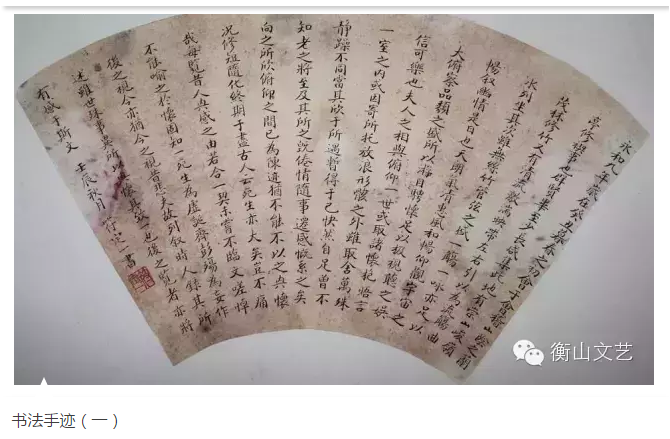 永和九年歲在癸丑暮春之初會于會稽山陰之蘭
亭脩禊事也群賢畢至少長咸集此地有崇山峻嶺
茂林修竹又有清流激湍映帶左右引以為流觴曲
水列坐其次雖無絲竹管弦之盛一觴一詠亦足以
暢叙幽情是日也天朗氣清惠風和暢仰觀宇宙之
大俯察品類之盛所以遊目騁懷足以極視聽之娛
信可樂也夫人之相與俯仰一世或取諸懷抱悟言
一室之內或因寄所托放浪形骸之外雖取舍萬殊
靜躁不同當其欣于所遇暫得于己快然自足曾不
知老之將至及其所之既倦情隨事遷感慨系之矣
向之所欣俯仰之間已為陳迹猶不能不以之興懷
况修短隨化終期于盡古人云死生亦大矣豈不痛
哉每覽昔人興感之由若合一契未嘗不臨文嗟悼
不能喻之於懷固知一死生為虛誕齊彭殤為妄作
後之視今亦猶今之視昔悲夫故列叙時人錄其所
述雖世殊事異所以興懷其致一也後之覽者亦將
有感于斯文 壬辰秋月 書
衡山文艺
书法手迹（一）